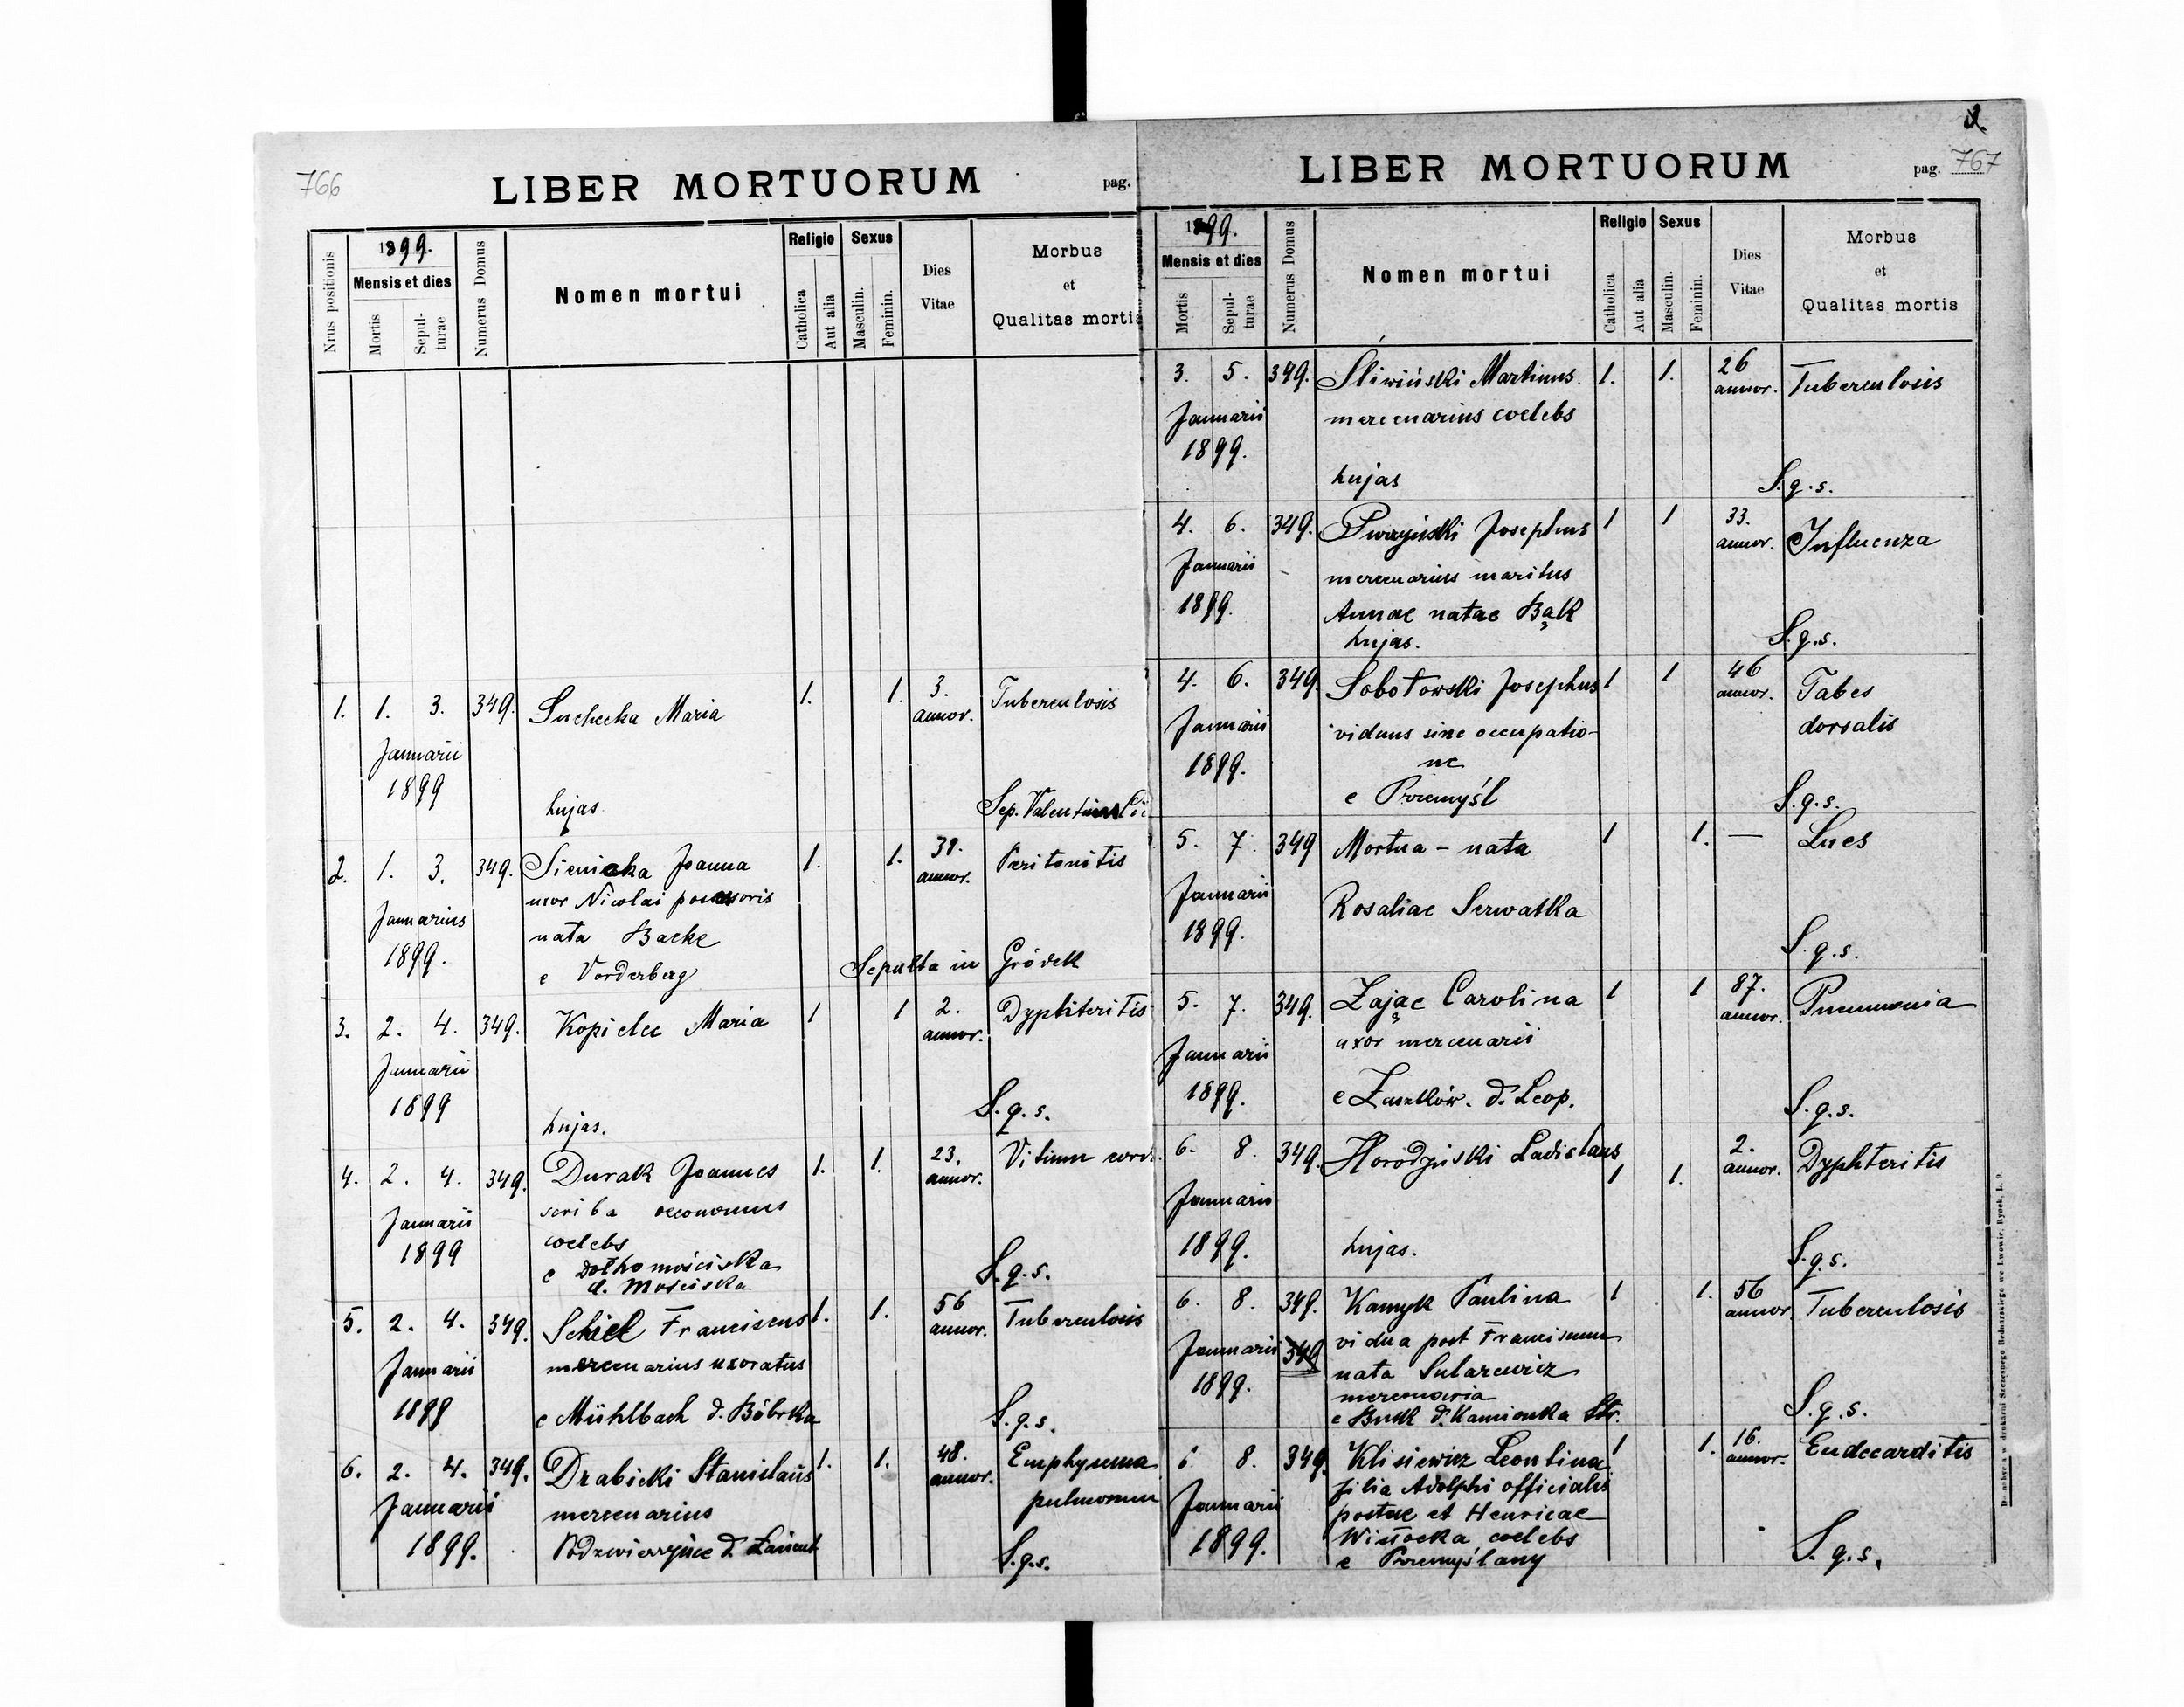 766
LIBER MORTUORUM
pag.
Nrus positionis
1899.
Mensis et dies
Mortis
Sepulturae
Numerus Domus
Nomen mortui
Religio
Catholica
Aut alia
Sexus
Masculin.
Feminin.
Dies Vitae
Morbus et Qualitas mortis
1. 1. 3. 349. Suchecka Maria 1. 1. 3. annor. Tuberculosis
Januarii
1899
hujas
Sep. Valentin
2. 1. 3. 349. Sienicka Joanna 1. 1. 38. annor. Peritonitis
uxor Nicolai possessoris
Januarius
nata Backe
1899.
e Vorderberg
Sepulta in Gródek
3. 2. 4. 349. Kopielec Maria 1 1 2. annor. Dyphteritis
Januarii
1899
hujas.
S.q.s.
4. 2. 4. 349. Durak Joannes 1. 1. 23. annor. Vitium cordis
scriba oeconomus
Januarii
coelebs
1899
e Dołhomościska
d. Mościska
S.q.s.
5. 2. 4. 349. Schiel Franciscus 1. 1. 56 annor. Tuberculosis
Januarii
mercenarius uxoratus
1899
e Mühlbach d. Bóbrka
S.q.s.
6. 2. 4. 349. Drabicki Stanislaus 1. 1. 48. annor. Emphysema
Januarii
mercenarius
pulmonum
1899.
d. Łańcut
S.q.s.
2.
LIBER MORTUORUM
pag. 767
1899.
Mensis et dies
Mortis
Sepulturae
Numerus Domus
Nomen mortui
Religio
Catholica
Aut alia
Sexus
Masculin.
Feminin.
Dies Vitae
Morbus et Qualitas mortis
3. 5. 349. Śliwiński Martinus 1. 1. 26 annor. Tuberculosis
Januarii
mercenarius coelebs
1899.
hujas
S.q.s.
4. 6. 349. Josephus 1 1 33. annor. Influenza
Januarii
mercenarius maritus
1899.
Annae natae Bąk
hujas.
S.q.s.
4. 6. 349 Sobotowski Josephus 1 1 46 annor. Tabes
dorsalis
Januarii
viduus sine occupatio-
ne
1899.
e Przemyśl
S.q.s.
5. 7. 349 Mortua - nata 1 1. — Lues
Januarii
Rosaliae Serwatka
1899.
S.q.s.
5. 7. 349. Zając Carolina 1 1 87. annor. Pneumonia
uxor mercenarii
Januarii
1899.
e Zaszków. d. Leop.
S.q.s.
6. 8. 349. Horodyński Ladislaus 1 1. 2. annor. Dyphteritis
Januarii
1899.
hujas.
S.q.s.
6. 8. 349. Kamyk Paulina 1 1. 56 annor Tuberculosis
Januarii 349
vidua post Franciscum
1899.
nata Sularewicz
mercenaria
e Busk d. Kamionka Str.
S.q.s.
6. 8. 349. Klisiewicz Leontina 1 1. 16. annor. Endecarditis
filia Adolphi officialis
Januarii
postae et Henricae
1899.
Wisłocka coelebs
e Przemyślany
S.q.s.
drukarni Szczęsnego Bednarskiego we Lwowie, Rynek, L. 9.